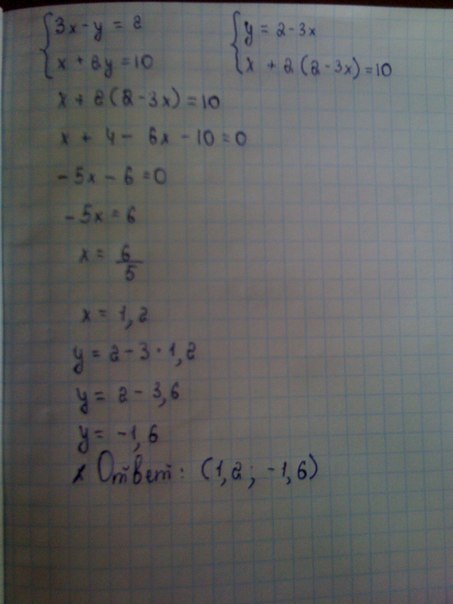 3x - y = 2 y = 2 - 3x
x + 2y = 10 x + 2(2 - 3x) = 10
x + 2(2 - 3x) = 10
x + 4 - 6x - 10 = 0
-5x - 6 = 0
-5x = 6
x = 6/5
x = 1,2
y = 2 - 3 · 1,2
y = 2 - 3,6
y = -1,6
Ответ: (1,2; -1,6)